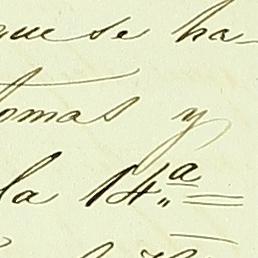 que se ha-
tomas y
la 14.ª =